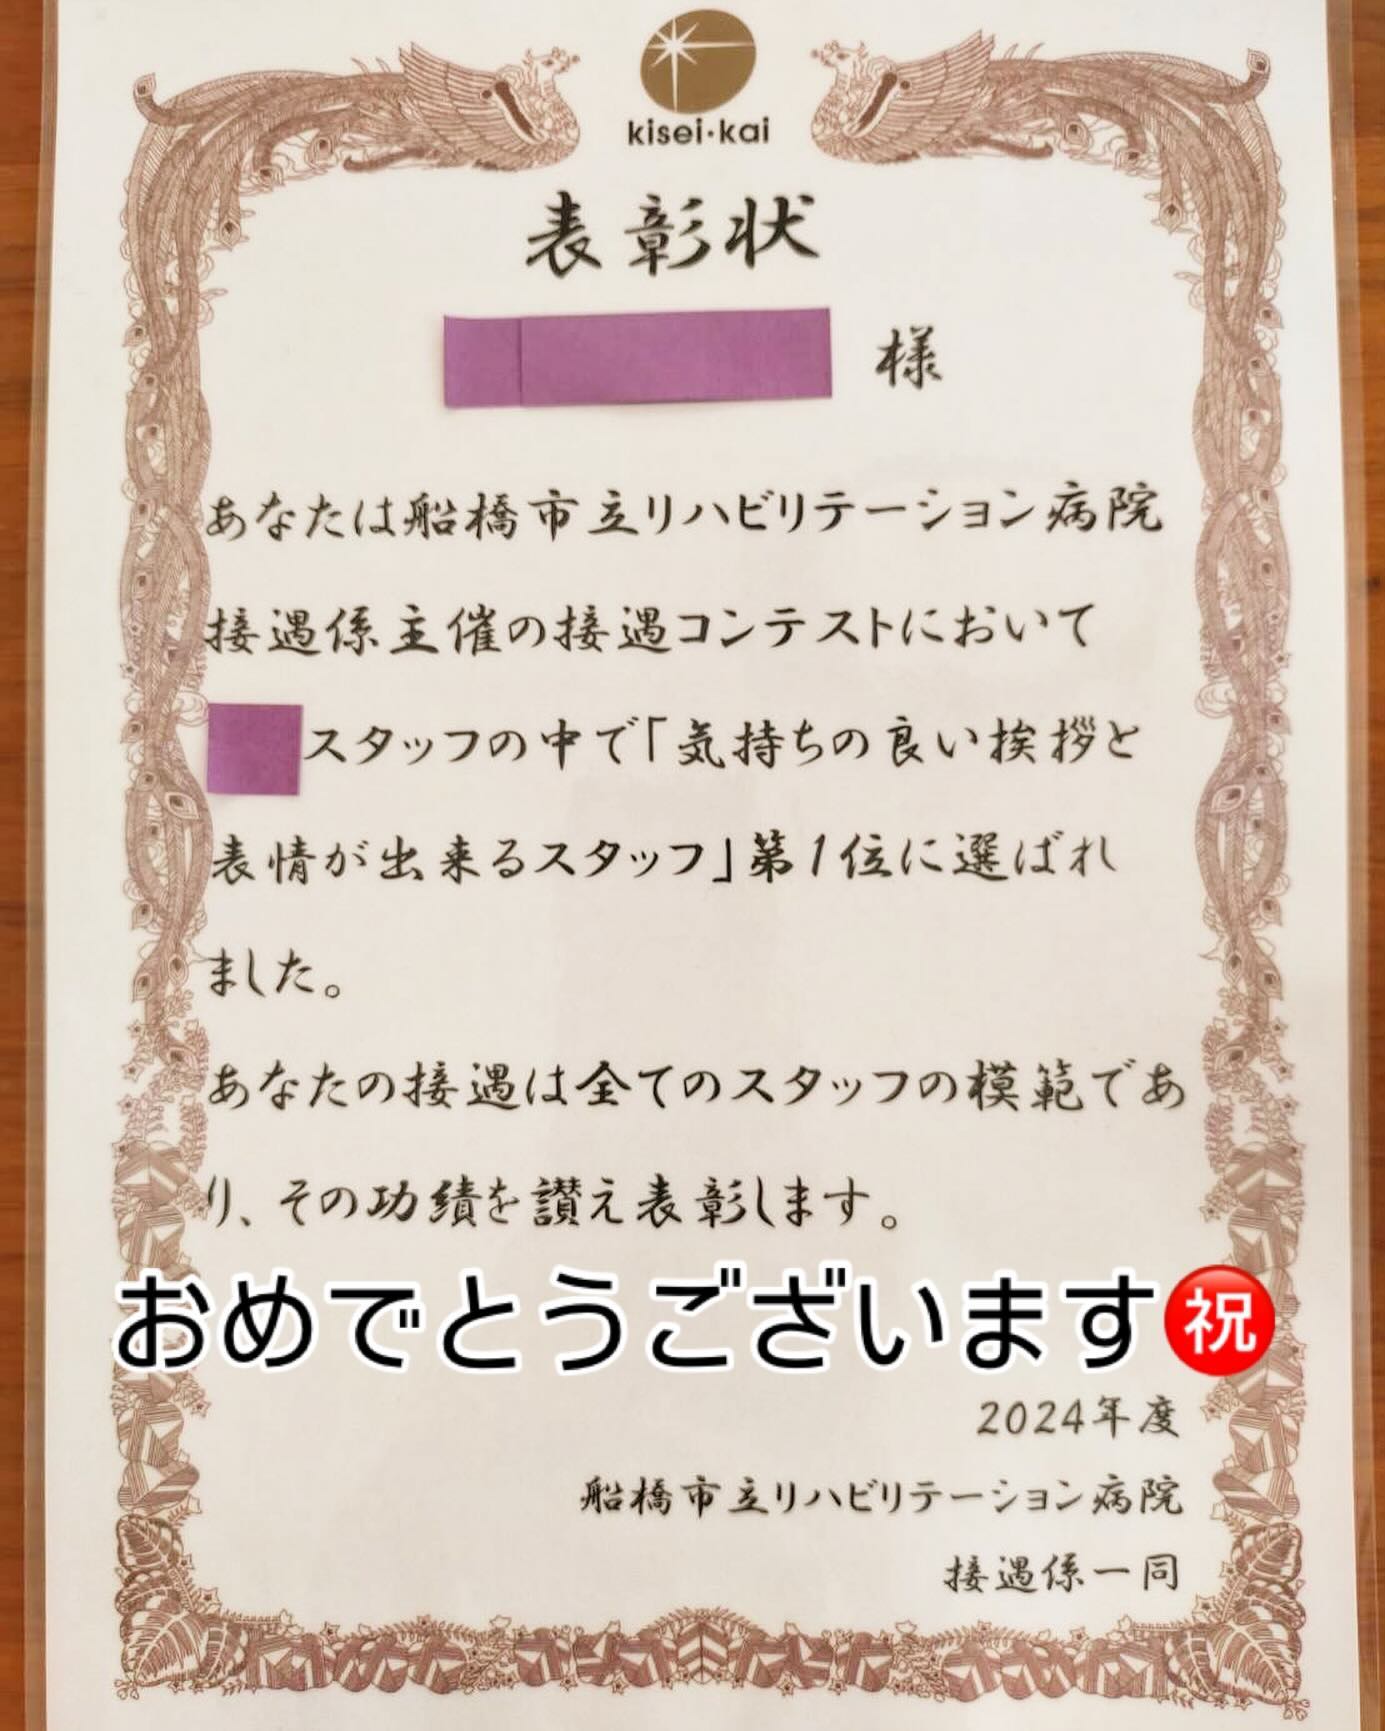 kisei・kai
表彰状
様
あなたは船橋市立リハビリテーション病院
接遇係主催の接遇コンテストにおいて
スタッフの中で「気持ちの良い挨拶と
表情が出来るスタッフ」第1位に選ばれ
ました。
あなたの接遇は全てのスタッフの模範であ
り、その功績を讃え表彰します。
おめでとうございます㊗
2024年度
船橋市立リハビリテーション病院
接遇係一同